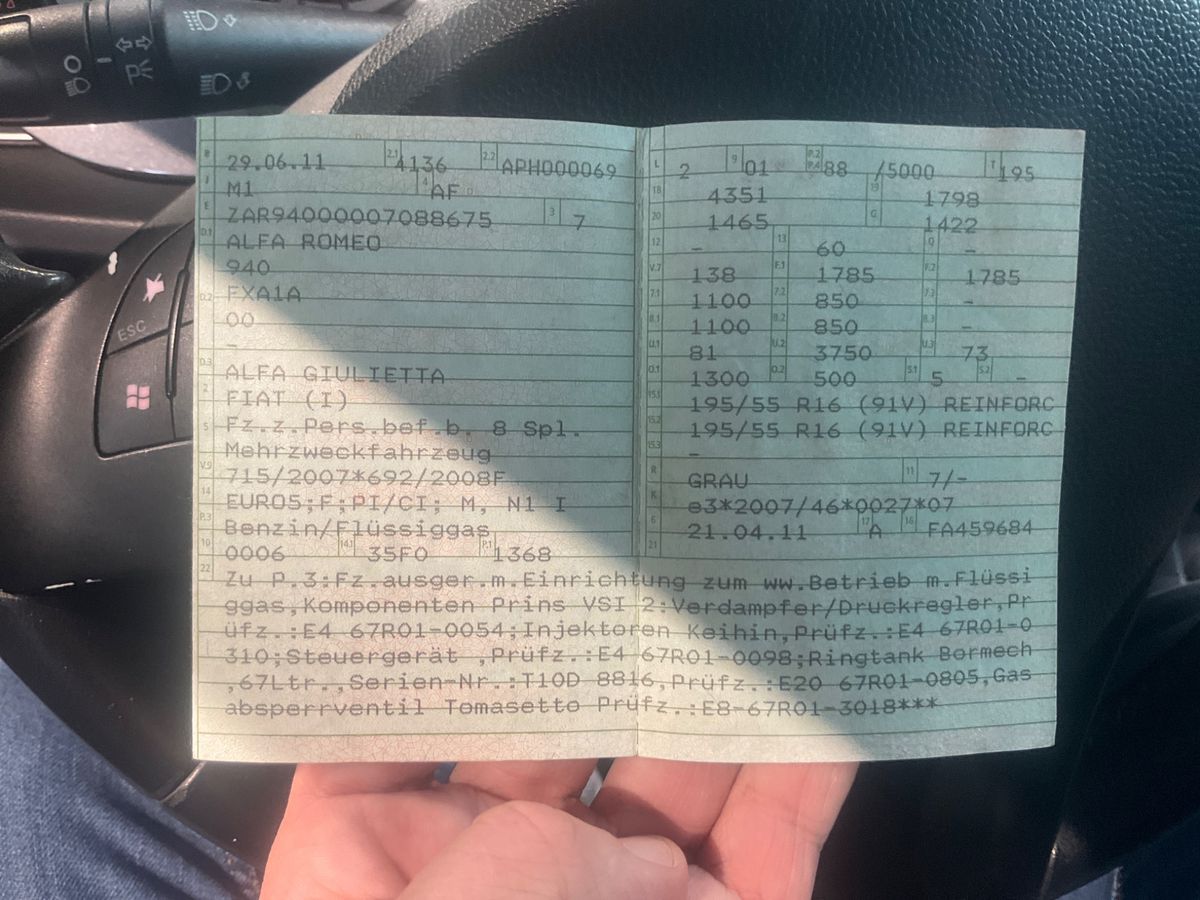 ESC
B 29.06.11 2.1 4136 2.2 APH000069
J M1 4 AF
E ZAR94000007088675 3 7
D.1 ALFA ROMEO
940
D.2 FXA1A
00
-
D.3 ALFA GIULIETTA
2 FIAT (I)
5 Fz.z.Pers.bef.b. 8 Spl.
Mehrzweckfahrzeug
V.9 715/2007*692/2008F
14 EURO5;F;PI/CI; M, N1 I
P.3 Benzin/Flüssiggas
10 0006 14.1 35F0 P.1 1368
L 2 9 01 P.2 P.4 88 /5000 T 195
18 4351 19 1798
20 1465 G 1422
12 - 13 60 Q -
V.7 138 F.1 1785 F.2 1785
7.1 1100 7.2 850 7.3 -
8.1 1100 8.2 850 8.3 -
U.1 81 U.2 3750 U.3 73
O.1 1300 O.2 500 S.1 5 S.2 -
15.1 195/55 R16 (91V) REINFORC
15.2 195/55 R16 (91V) REINFORC
15.3 -
R GRAU 11 7/-
K e3*2007/46*0027*07
6 21.04.11 17 A 16 FA459684
21
22 Zu P.3:Fz.ausger.m.Einrichtung zum ww.Betrieb m.Flüssi
ggas,Komponenten Prins VSI 2:Verdampfer/Druckregler,Pr
üfz.:E4 67R01-0054;Injektoren Keihin,Prüfz.:E4 67R01-0
310;Steuergerät ,Prüfz.:E4 67R01-0098;Ringtank Bormech
,67Ltr.,Serien-Nr.:T10D 8816,Prüfz.:E20 67R01-0805,Gas
absperrventil Tomasetto Prüfz.:E8-67R01-3018***